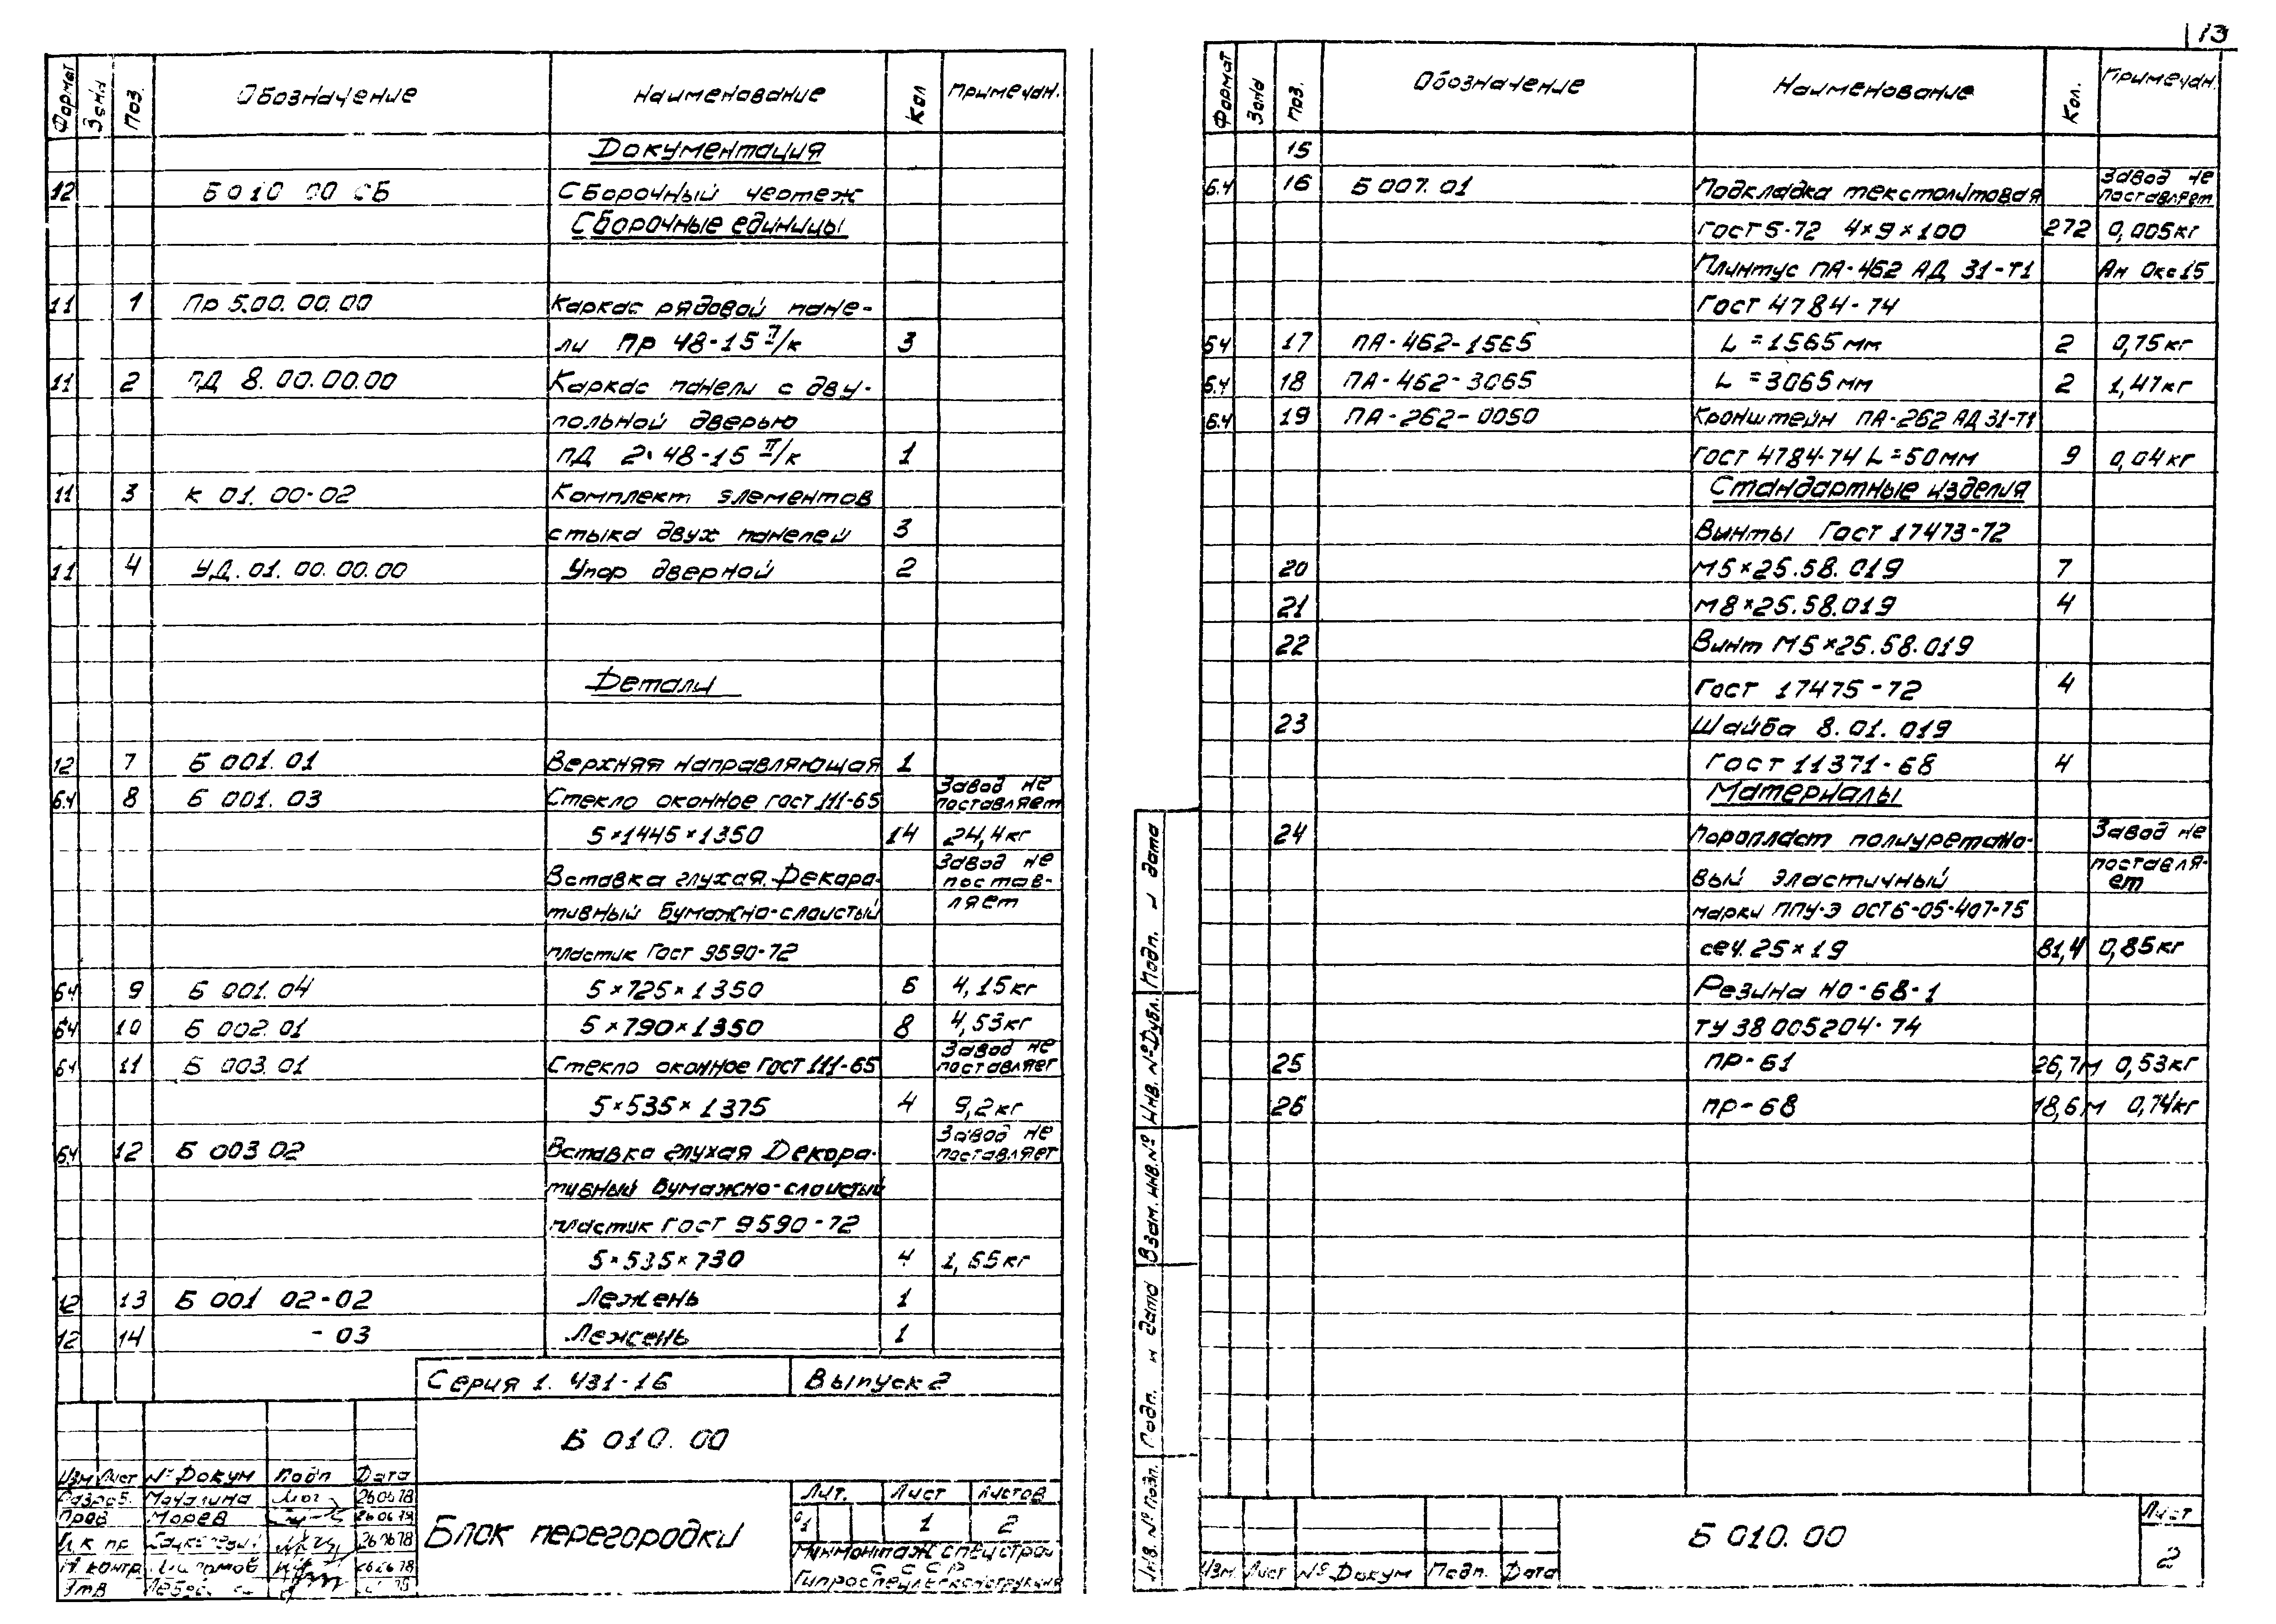 13
Формат Зона Поз. Обозначение Наименование Кол Примечан.
Документация
12 Б 010 00 СБ Сборочный чертеж
Сборочные единицы
11 1 Пр 5.00.00.00 Каркас рядовой пане-
ли Пр 48-15 II/к 3
11 2 ПД 8.00.00.00 Каркас панели с дву-
польной дверью
ПД 2.48-15 II/к 1
11 3 К 01.00-02 Комплект элементов
стыка двух панелей 3
11 4 УД.01.00.00.00 Упор дверной 2
Детали
12 7 Б 001.01 Верхняя направляющая 1
Завод не
Б.Ч 8 Б 001.03 Стекло оконное ГОСТ 111-65 поставляет
5×1445×1350 14 24,4кг
Завод не
Вставка глухая. Декора- постав-
тивный бумажно-слоистый ляет
пластик ГОСТ 9590-72
БЧ 9 Б 001.04 5×725×1350 6 4,15кг
БЧ 10 Б 002.01 5×790×1350 8 4,53кг
Завод не
БЧ 11 Б 003.01 Стекло оконное ГОСТ 111-65 поставляет
5×535×1375 4 9,2кг
Завод не
БЧ 12 Б 003 02 Вставка глухая Декора- поставляет
тивный бумажно-слоистый
пластик ГОСТ 9590-72
5×535×730 4 1,65кг
12 13 Б 001 02-02 Лежень 1
12 14 -03 Лежень 1
Серия 1.431-16 Выпуск 2
Б 010.00
Изм Лист № Докум Подп Дата
Разраб. Мочалина 260678
Пров Морев 260678
260678
Н.контр. 260678
Утв
Блок перегородки
Лит. Лист Листов
1 2
Минмонтажспецстрой
СССР
Гипроспецлегконструкция
Формат Зона Поз. Обозначение Наименование Кол. Примечан.
15
Завод не
Б.Ч 16 Б 007.01 Подкладка текстолитовая поставляет
ГОСТ 5-72 4×9×100 272 0,005кг
Плинтус ПА-462 АД 31-Т1 Ан Окс15
ГОСТ 4784-74
БЧ 17 ПА-462-1565 L=1565мм 2 0,75кг
Б.Ч 18 ПА-462-3065 L=3065мм 2 1,47кг
Б.Ч 19 ПА-262-0050 Кронштейн ПА-262 АД 31-Т1
ГОСТ 4784-74 L=50мм 9 0,04кг
Стандартные изделия
Винты ГОСТ 17473-72
20 М5×25.58.019 7
21 М8×25.58.019 4
22 Винт М5×25.58.019
ГОСТ 17475-72 4
23 Шайба 8.01.019
ГОСТ 11371-68 4
Материалы
24 Поропласт полиурета но- Завод не
вый эластичный поставля-
ет
марки ППУ-Э ОСТ6-05-407-75
сеч. 25×19 81,4 0,85кг
Резина НО-68-1
ТУ 38 005204-74
25 ПР-61 26,7м 0,53кг
26 ПР-68 18,6м 0,74кг
Инв. № подл. Подп. и дата Взам. инв. № Инв. № Дубл. Подп. и дата
Изм. Лист № Докум Подп. Дата
Б 010.00
Лист
2